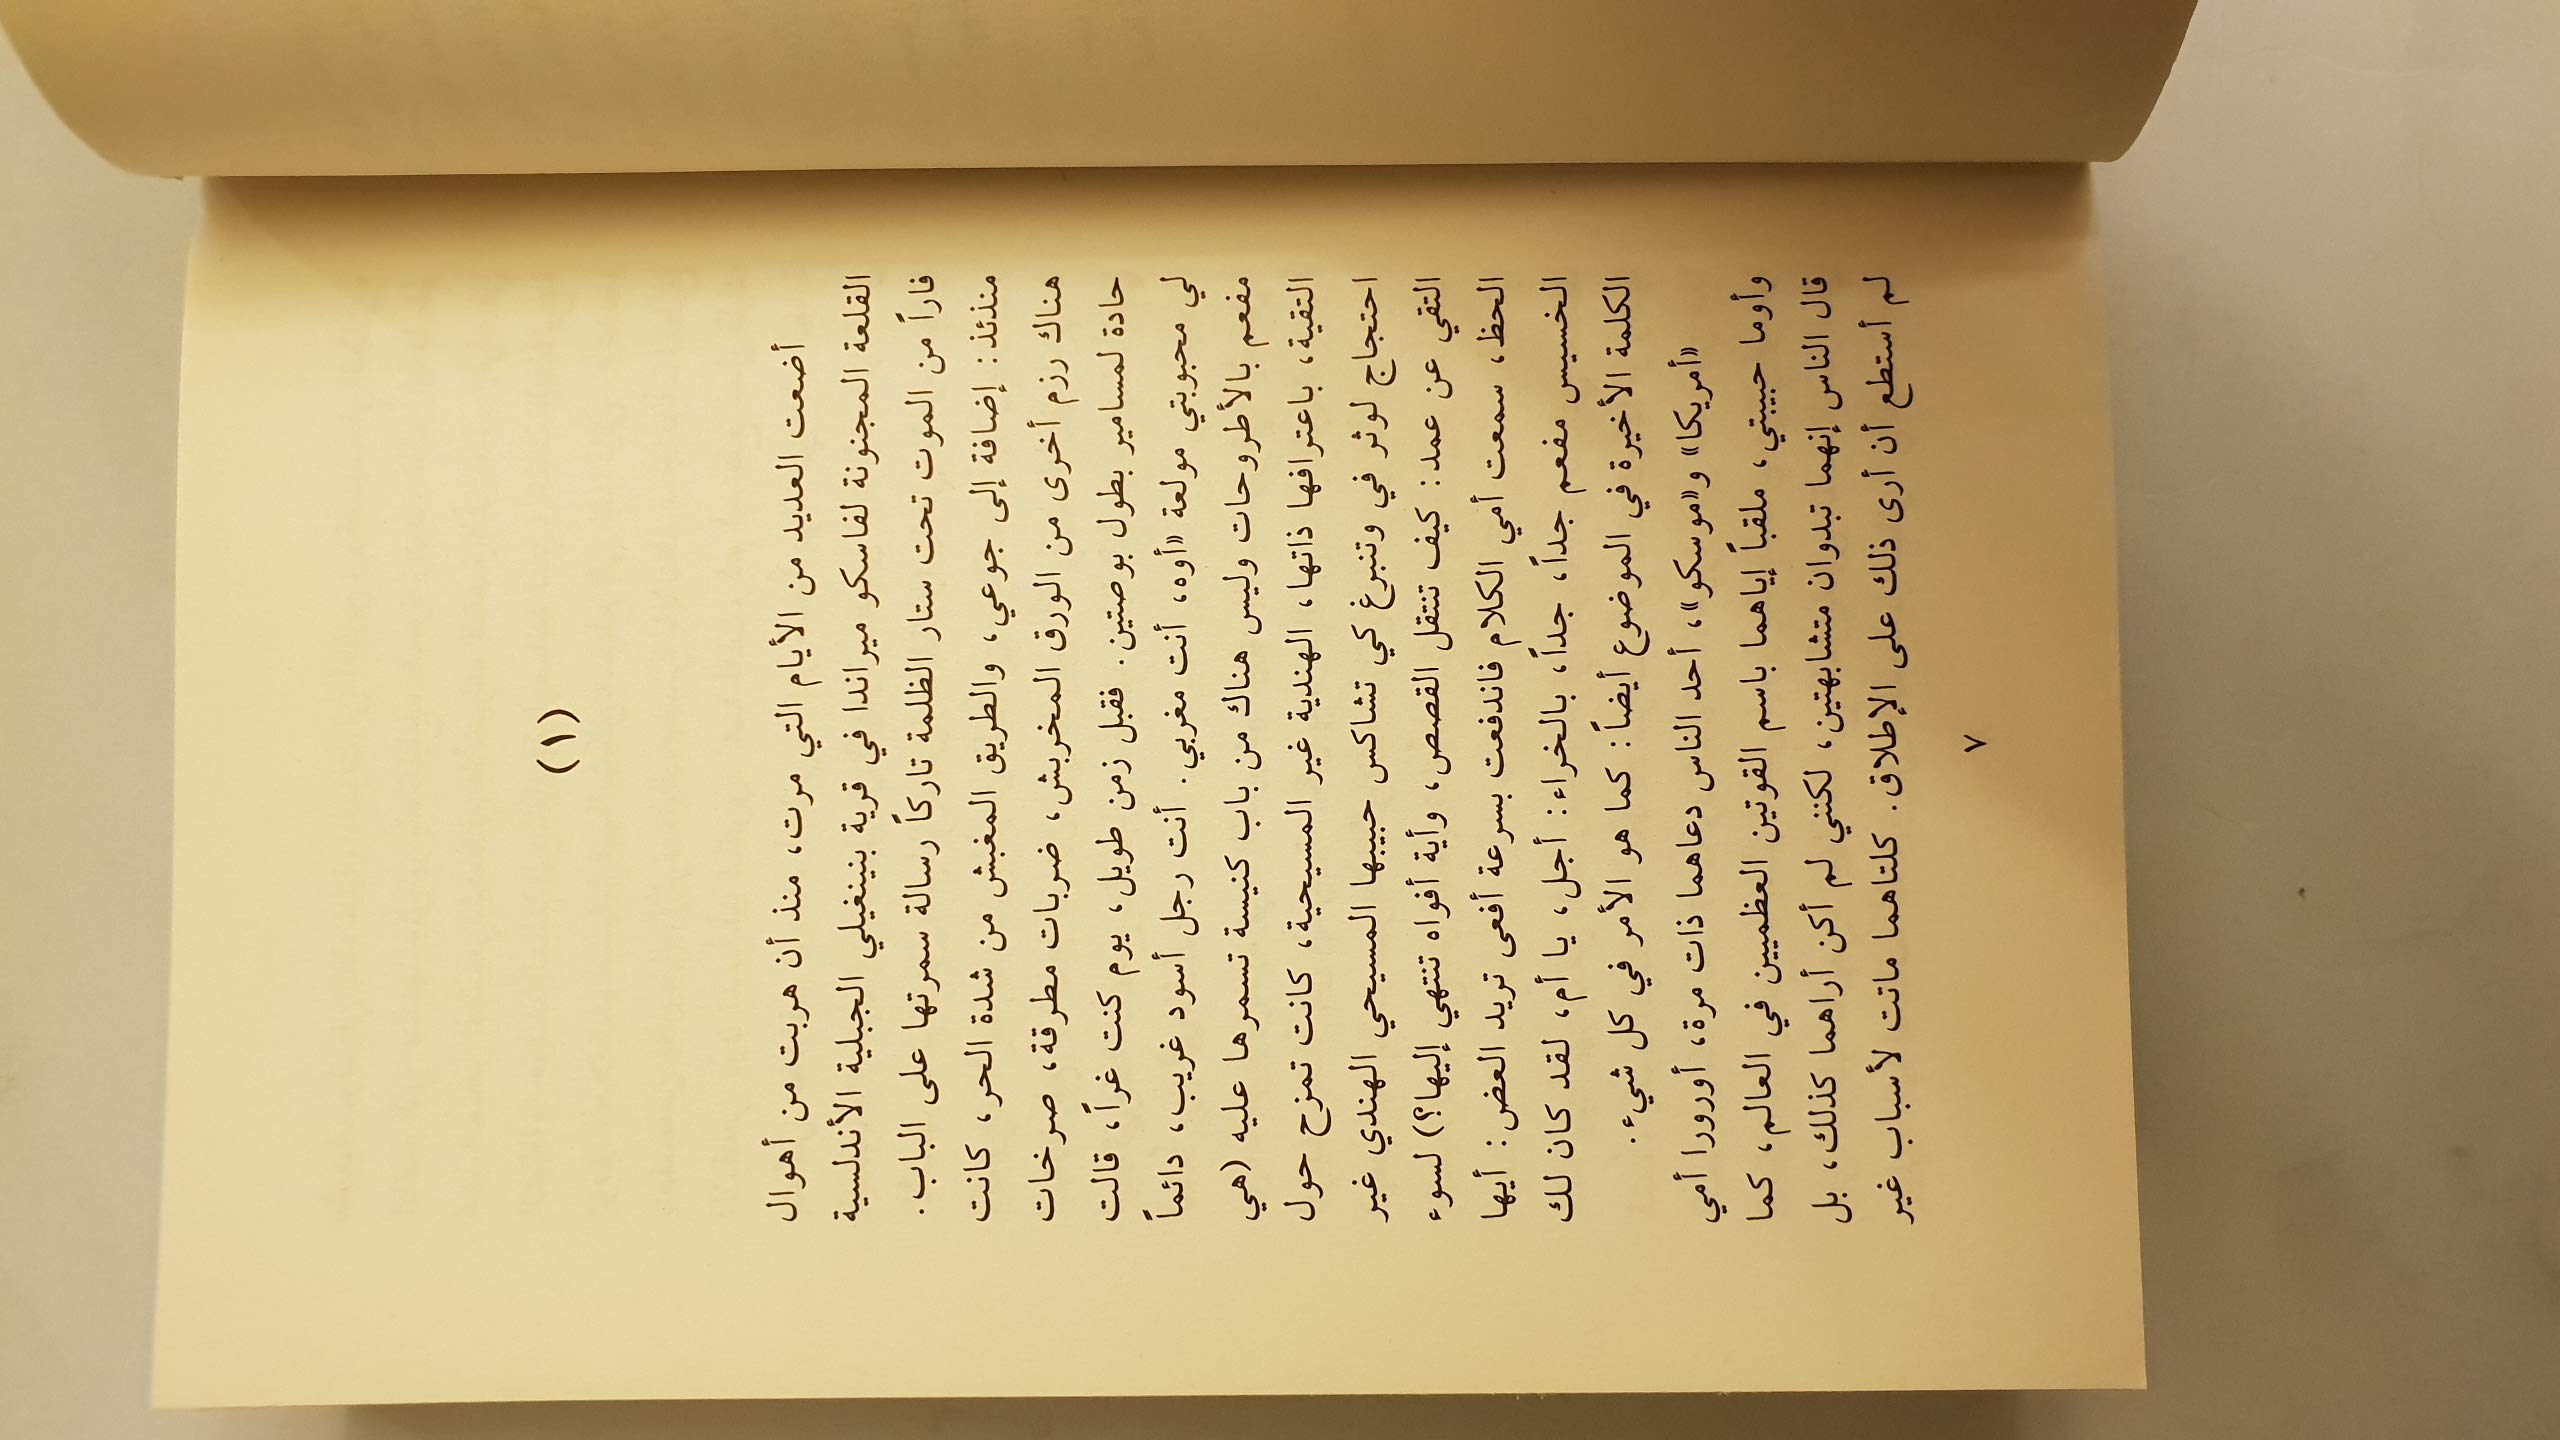 (١)
أضعت العديد من الأيام التي مرت، منذ أن هربت من أهوال
القلعة المجنونة لفاسكو ميراندا في قرية بينيغيلي الجبلية الأندلسية
فاراً من الموت تحت ستار الظلمة تاركاً رسالة سمرتها على الباب.
منذئذ: إضافة إلى جوعي، والطريق المغبش من شدة الحر، كانت
هناك رزم أخرى من الورق المخربش، ضربات مطرقة، صرخات
حادة لمسامير بطول بوصتين. فقبل زمن طويل، يوم كنت غراً، قالت
لي محبوبتي مولعة «أوه، أنت مغربي. أنت رجل أسود غريب، دائماً
مفعم بالأطروحات وليس هناك من باب كنيسة تسمرها عليه (هي
التقية، باعترافها ذاتها، الهندية غير المسيحية، كانت تمزح حول
احتجاج لوثر في وتنبرغ كي تشاكس حبيبها المسيحي الهندي غير
التقي عن عمد: كيف تنتقل القصص، وأية أفواه تنتهي إليها؟) لسوء
الحظ، سمعت أمي الكلام فاندفعت بسرعة أفعى تريد العض: أيها
الخسيس مفعم جداً، جداً، بالخراء: أجل، يا أم، لقد كان لك
الكلمة الأخيرة في الموضوع أيضاً: كما هو الأمر في كل شيء.
«أمريكا» و«موسكو»، أحد الناس دعاهما ذات مرة، أورورا أمي
وأوما حبيبتي، ملقباً إياهما باسم القوتين العظميين في العالم، كما
قال الناس إنهما تبدوان متشابهتين، لكنني لم أكن أراهما كذلك، بل
لم أستطع أن أرى ذلك على الإطلاق. كلتاهما ماتت لأسباب غير
٧